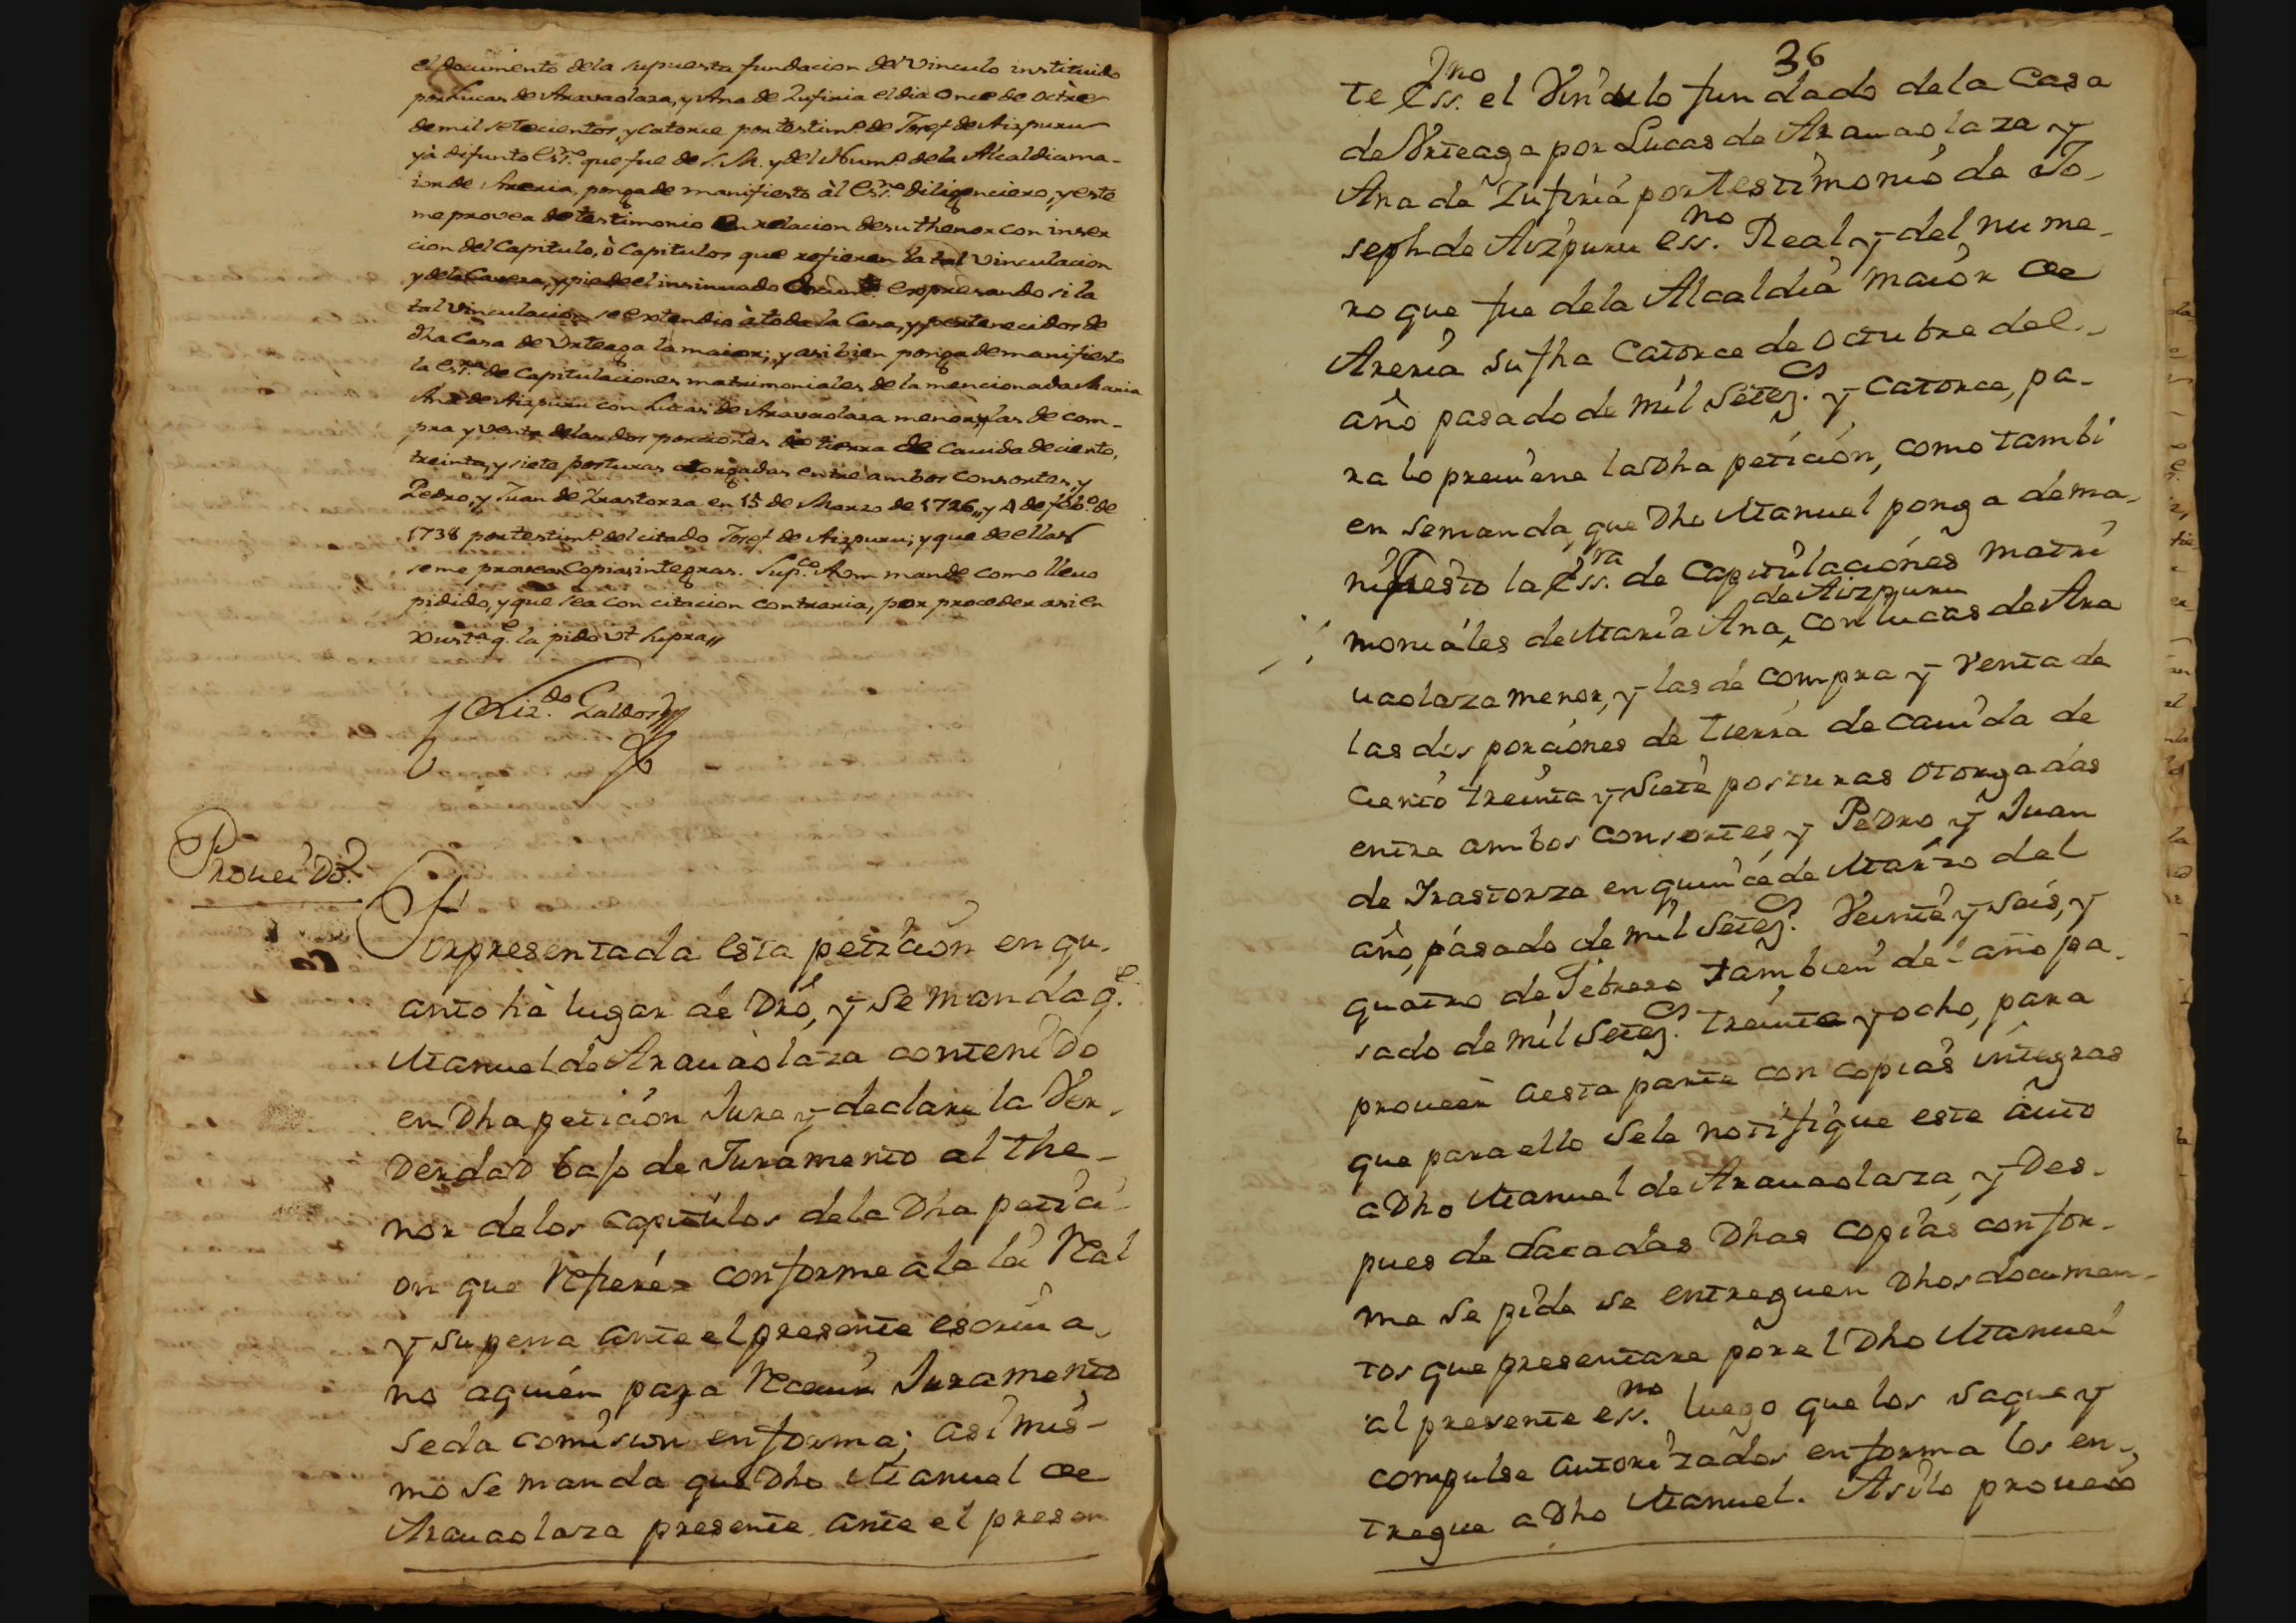 el documento dela supuesta fundacion del Vinculo instituido
por Lucas de Aravaolaza, y Ana de Zufiria el dia Once de Octre
de mil setecientos, y catorce por testimo. de Josef de Aizpuru
yà difunto Essno. que fue de S. M. y del Numo. dela Alcaldia ma-
ior de Areria, ponga de manifiesto àl Essno. diligenciero, y este
me provea de testimonio en relacion desu thenor con inser
cion del Capitulo, ò Capitulos que refieren la tal vinculacion
y dela Cavera, y pie de el insinuado Docum.to expresando si la
tal Vinculacion se extendio à toda la Casa, y pertenecidos de
dha Casa de Urteaga la maior; y asi bien ponga de manifiesto
la Essra. de Capitulaciones matrimoniales de la mencionada Maria
Ana de Aizpuru con Lucas de Aravaolaza menor, y las de com-
pra y venta delas dos porciones de tierra de Cavida de ciento,
treinta, y siete posturas otorgadas entre ambos Consortes, y
Pedro, y Juan de Irastorza en 15 de Marzo de 1726,, y 4 de febo. de
1738 por testimo. del citado Josef de Aizpuru; y que de ellas
se me provean Copias integras. Supco. Avm mande como llevo
pidido, y que sea con citacion contraria, por proceder asi en
Justa. qe. la pido Vt Supra,,
Lizdo. Galdos
Proueido.
Por presentada esta petición en qu-
anto hà lugar de Dro, y Se manda qe.
Manuel de Arauàolaza contenido
en Dha petición Jure y declare la Ver-
Derdad bajo de Juramento al the-
nor delos capitulos dela Dha petici-
on que Refiere conforme ala lei Real
y su pena ante el presente escriua-
no aquien para Receuir Juramento
seda comision en forma; asi mis-
mo Se manda que Dho Manuel de
Arauaolaza presente ante el presen
36
te Essno. el Vinculo fundado dela Casa
de Vrteaga por Lucas de Arauaolaza y
Ana de Zufiria por testimonio de Jo-
seph de Aizpuru essno. Real y del nume-
ro que fue dela Alcaldia maior de
Areria su fha Catorce de Octubre del
año pasado de mil Seteζs. y Catorce, pa-
ra lo preuiene la Dha petición, como tambi
en semanda, que Dho Manuel ponga dema-
nifiesto la Essra. de Capitulaciónes matri
moniáles de Maria Ana de Aizpuru, con lucas de Ara
uaolaza menor, y las de compra y Venta de
las dos porciónes de tierra de cauida de
Ciento treinta y Siete posturas otorgadas
entre ambos Consortes, y Pedro y Juan
de Irastorza en quince de Marzo del
año, pasado de mil Seteζs. Veinte y seis, y
quatro de Febrero tambien del año pa-
sado de mil Seteζs. treinta y ocho, para
proueer aesta parte con copias integras
que para ello Sele notifique este auto
a Dho Manuel de Arauaolaza, y Des-
pues de sacadas Dhas Copias confor-
me Se pide se entreguen Dhos documen-
tos que presentare por el Dho Manuel
al presente essno. luego que los saque y
compulse autorizados en forma los en-
tregue a Dho Manuel. Asilo proueió